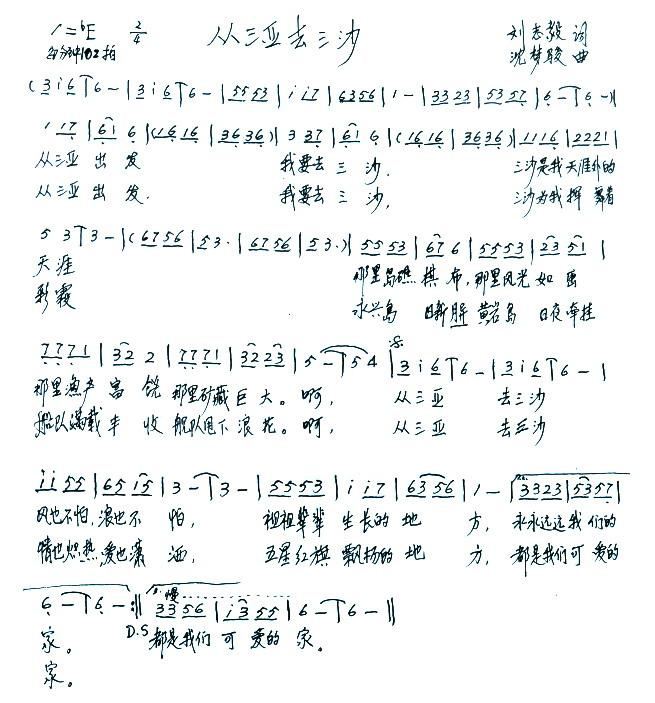 1=♭E 2/4 从三亚去三沙 刘志毅 词
每分钟102拍 沈梦骏 曲
(3 i 6 | 6 - | 3 i 6 | 6 - | 5553 | i i7 | 6356 | 1 - | 3323 | 5357 | 6 - | 6 - )|
1 17 | 61 6 |(1616 | 3636)| 3 37 | 61 6 |(1616 | 3636)| 1116 | 2221 |
从三亚 出 发 我要去 三 沙. 三沙是我天涯外的
从三亚 出 发. 我要去 三 沙, 三沙为我挥舞着
5 3 | 3 - |(6756 | 53· | 6756 | 53·)| 5553 | 67 6 | 5553 | 23 51 |
天涯 那里岛礁 棋布, 那里风光 如画
彩霞 永兴岛 日新月异 黄岩岛 日夜牵挂
7771 | 32 2 | 7771 | 3223 | 5 - | 5 4 | 3 i 6 | 6 - | 3 i 6 | 6 - |
那里渔产 富饶 那里矿藏 巨大。啊, 从三亚 去三沙
船队满载 丰收 舰队甩下 浪花。啊, 从三亚 去三沙
i i 55 | 65 i5 | 3 - | 3 - | 5553 | i i7 | 6356 | 1 - | 3323 | 5357 |
风也不怕,浪也不 怕, 祖祖辈辈 生长的 地 方, 永永远远我们的
情也炽热,爱也潇 洒, 五星红旗 飘扬的 地 方, 都是我们可爱的
6 - | 6 - :‖ 3356 | i 3 55 | 6 - | 6 - ‖
家。 D.S 都是我们 可 爱的 家。
家。